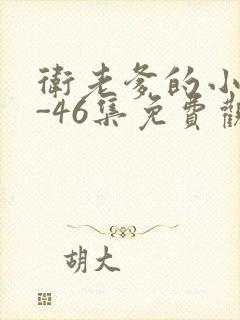 衛老爹的小
-46集免費觀
胡大